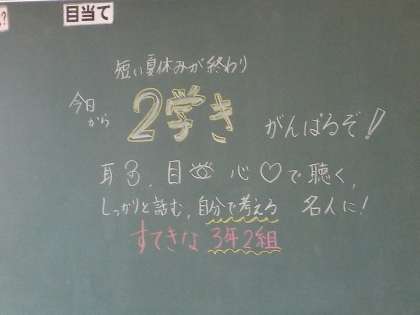 目当て
短い夏休みが終わり
今日から 2学き がんばるぞ!
耳、目 心♡で聴く、
しっかりと読む、自分で考える 名人に!
すてきな 3年2組